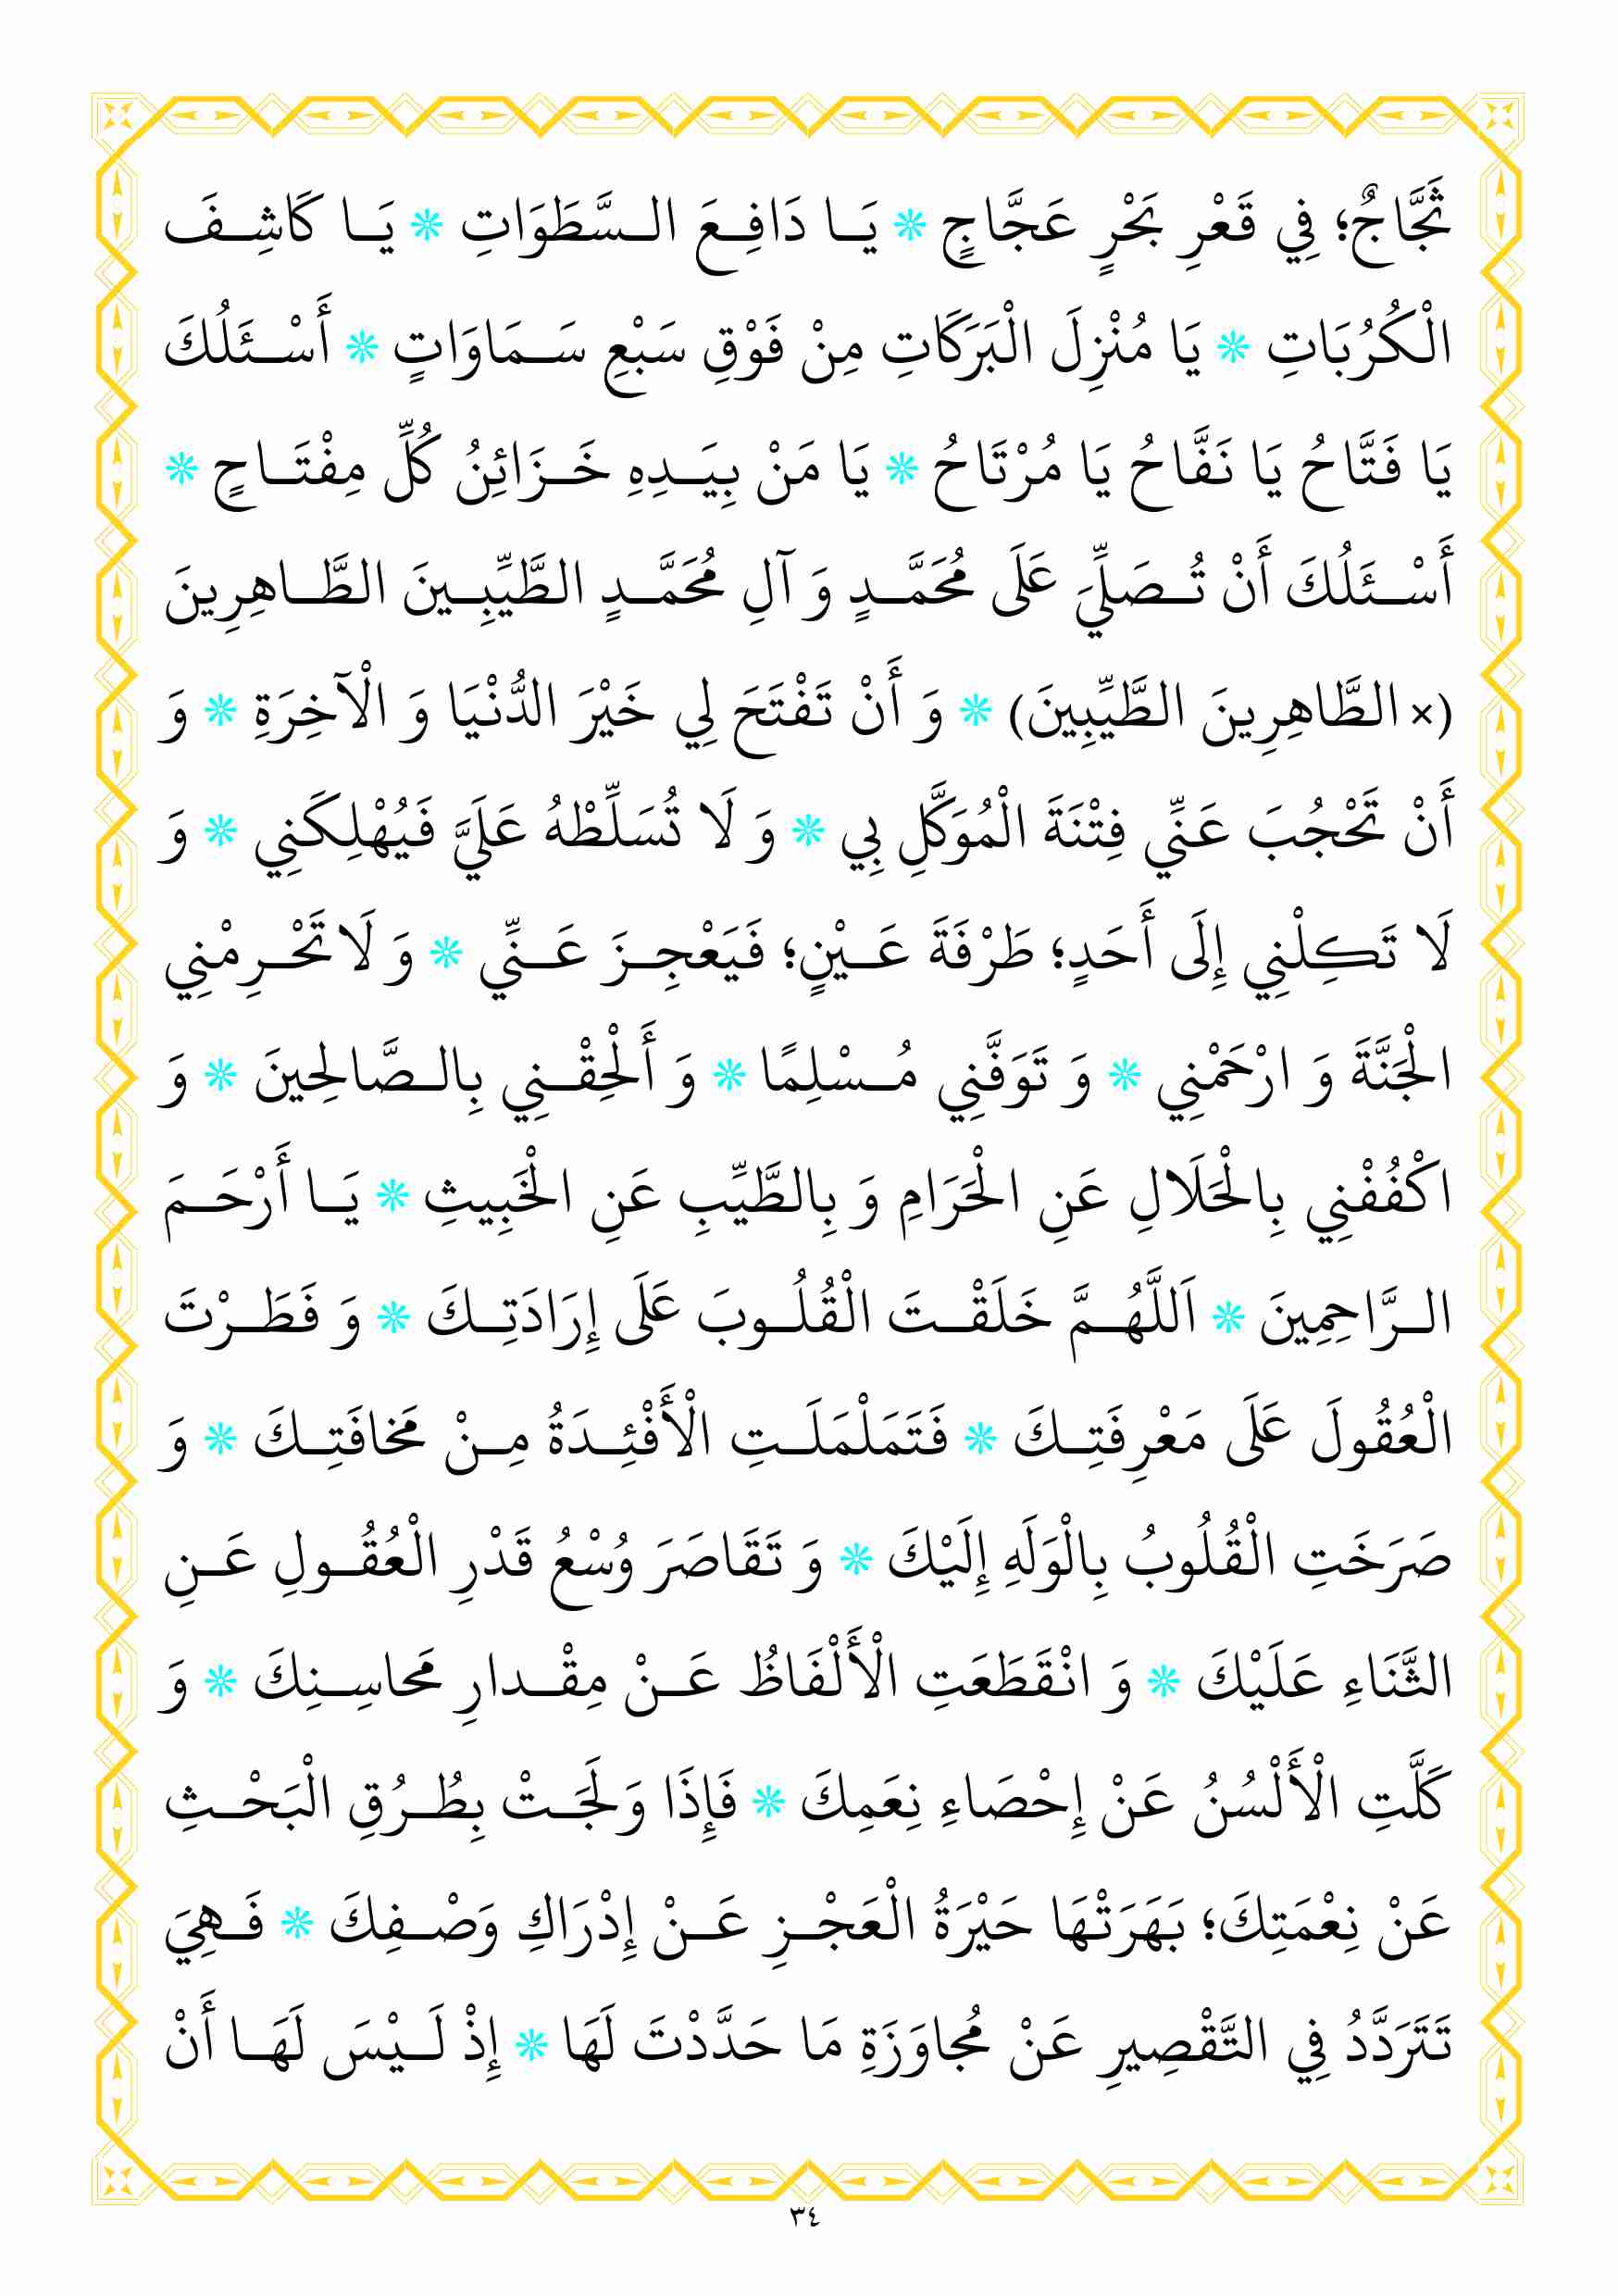 ثَجَّاجٌ؛ فِي قَعْرِ بَحْرٍ عَجَّاجٍ * يَا دَافِعَ السَّطَوَاتِ * يَا كَاشِفَ
الْكُرُبَاتِ * يَا مُنْزِلَ الْبَرَكَاتِ مِنْ فَوْقِ سَبْعِ سَمَاوَاتٍ * أَسْئَلُكَ
يَا فَتَّاحُ يَا نَفَّاحُ يَا مُرْتَاحُ * يَا مَنْ بِيَدِهِ خَزَائِنُ كُلِّ مِفْتَاحٍ *
أَسْئَلُكَ أَنْ تُصَلِّيَ عَلَى مُحَمَّدٍ وَ آلِ مُحَمَّدٍ الطَّيِّبِينَ الطَّاهِرِينَ
(× الطَّاهِرِينَ الطَّيِّبِينَ) * وَ أَنْ تَفْتَحَ لِي خَيْرَ الدُّنْيَا وَ الْآخِرَةِ * وَ
أَنْ تَحْجُبَ عَنِّي فِتْنَةَ الْمُوَكَّلِ بِي * وَ لَا تُسَلِّطْهُ عَلَيَّ فَيُهْلِكَنِي * وَ
لَا تَكِلْنِي إِلَى أَحَدٍ؛ طَرْفَةَ عَيْنٍ؛ فَيَعْجِزَ عَنِّي * وَ لَا تَحْرِمْنِي
الْجَنَّةَ وَ ارْحَمْنِي * وَ تَوَفَّنِي مُسْلِمًا * وَ أَلْحِقْنِي بِالصَّالِحِينَ * وَ
اكْفُفْنِي بِالْحَلَالِ عَنِ الْحَرَامِ وَ بِالطَّيِّبِ عَنِ الْخَبِيثِ * يَا أَرْحَمَ
الرَّاحِمِينَ * اَللَّهُمَّ خَلَقْتَ الْقُلُوبَ عَلَى إِرَادَتِكَ * وَ فَطَرْتَ
الْعُقُولَ عَلَى مَعْرِفَتِكَ * فَتَمَلْمَلَتِ الْأَفْئِدَةُ مِنْ مَخافَتِكَ * وَ
صَرَخَتِ الْقُلُوبُ بِالْوَلَهِ إِلَيْكَ * وَ تَقَاصَرَ وُسْعُ قَدْرِ الْعُقُولِ عَنِ
الثَّنَاءِ عَلَيْكَ * وَ انْقَطَعَتِ الْأَلْفَاظُ عَنْ مِقْدارِ مَحاسِنِكَ * وَ
كَلَّتِ الْأَلْسُنُ عَنْ إِحْصَاءِ نِعَمِكَ * فَإِذَا وَلَجَتْ بِطُرُقِ الْبَحْثِ
عَنْ نِعْمَتِكَ؛ بَهَرَتْهَا حَيْرَةُ الْعَجْزِ عَنْ إِدْرَاكِ وَصْفِكَ * فَهِيَ
تَتَرَدَّدُ فِي التَّقْصِيرِ عَنْ مُجاوَزَةِ مَا حَدَّدْتَ لَهَا * إِذْ لَيْسَ لَهَا أَنْ
٣٤